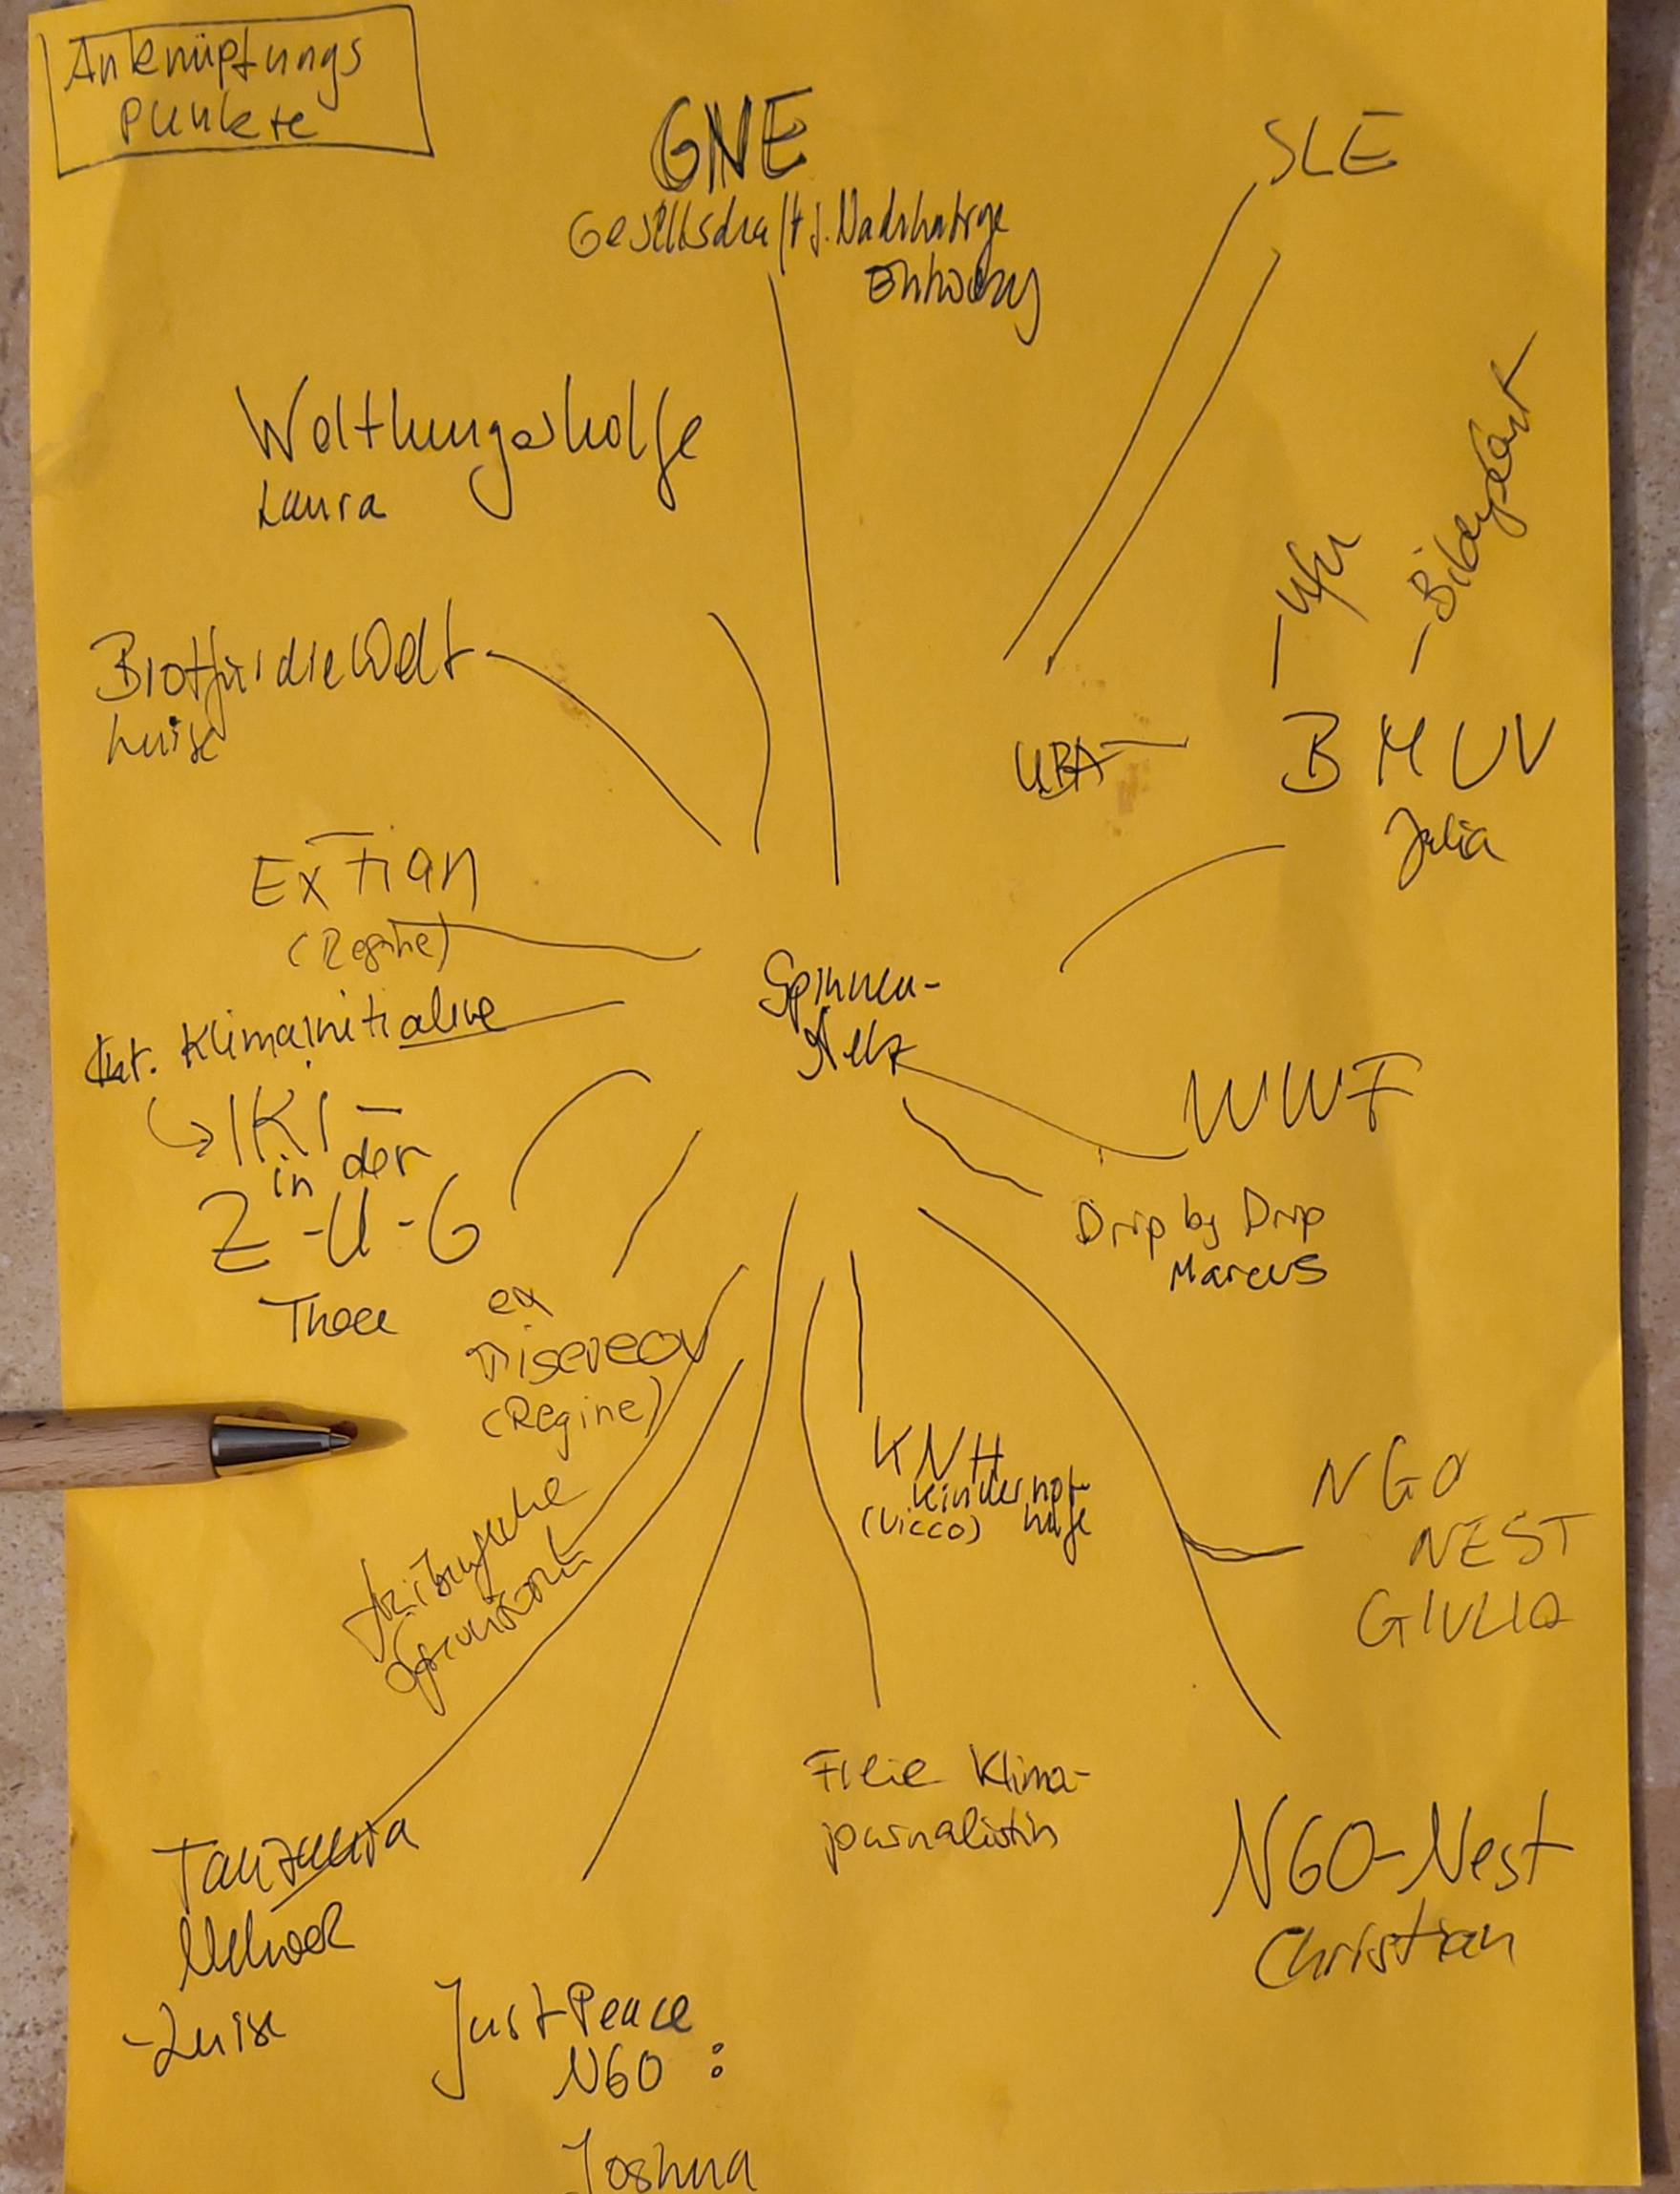 Anknüpfungs
Punkte
GNE
Gesellschaft f. Nachhaltige
Entwicklung
SLE
Welthungerhilfe
Laura
Brot für die Welt
Luise
UBA
BMUV
Julia
(Regine)
Int. Klimainitiative
IKI -
in der
Z-U-G
Spinnen-
Netz
WWF
Drip by Drip
Marcus
ex
Misereor
(Regine)
KNH
Kindernot
(Vicco) hilfe
NGO
NEST
GIULIA
Freie Klima-
journalistin
NGO-Nest
Christian
Tanzania
Network
-Luise
Just Peace
NGO :
Joshua